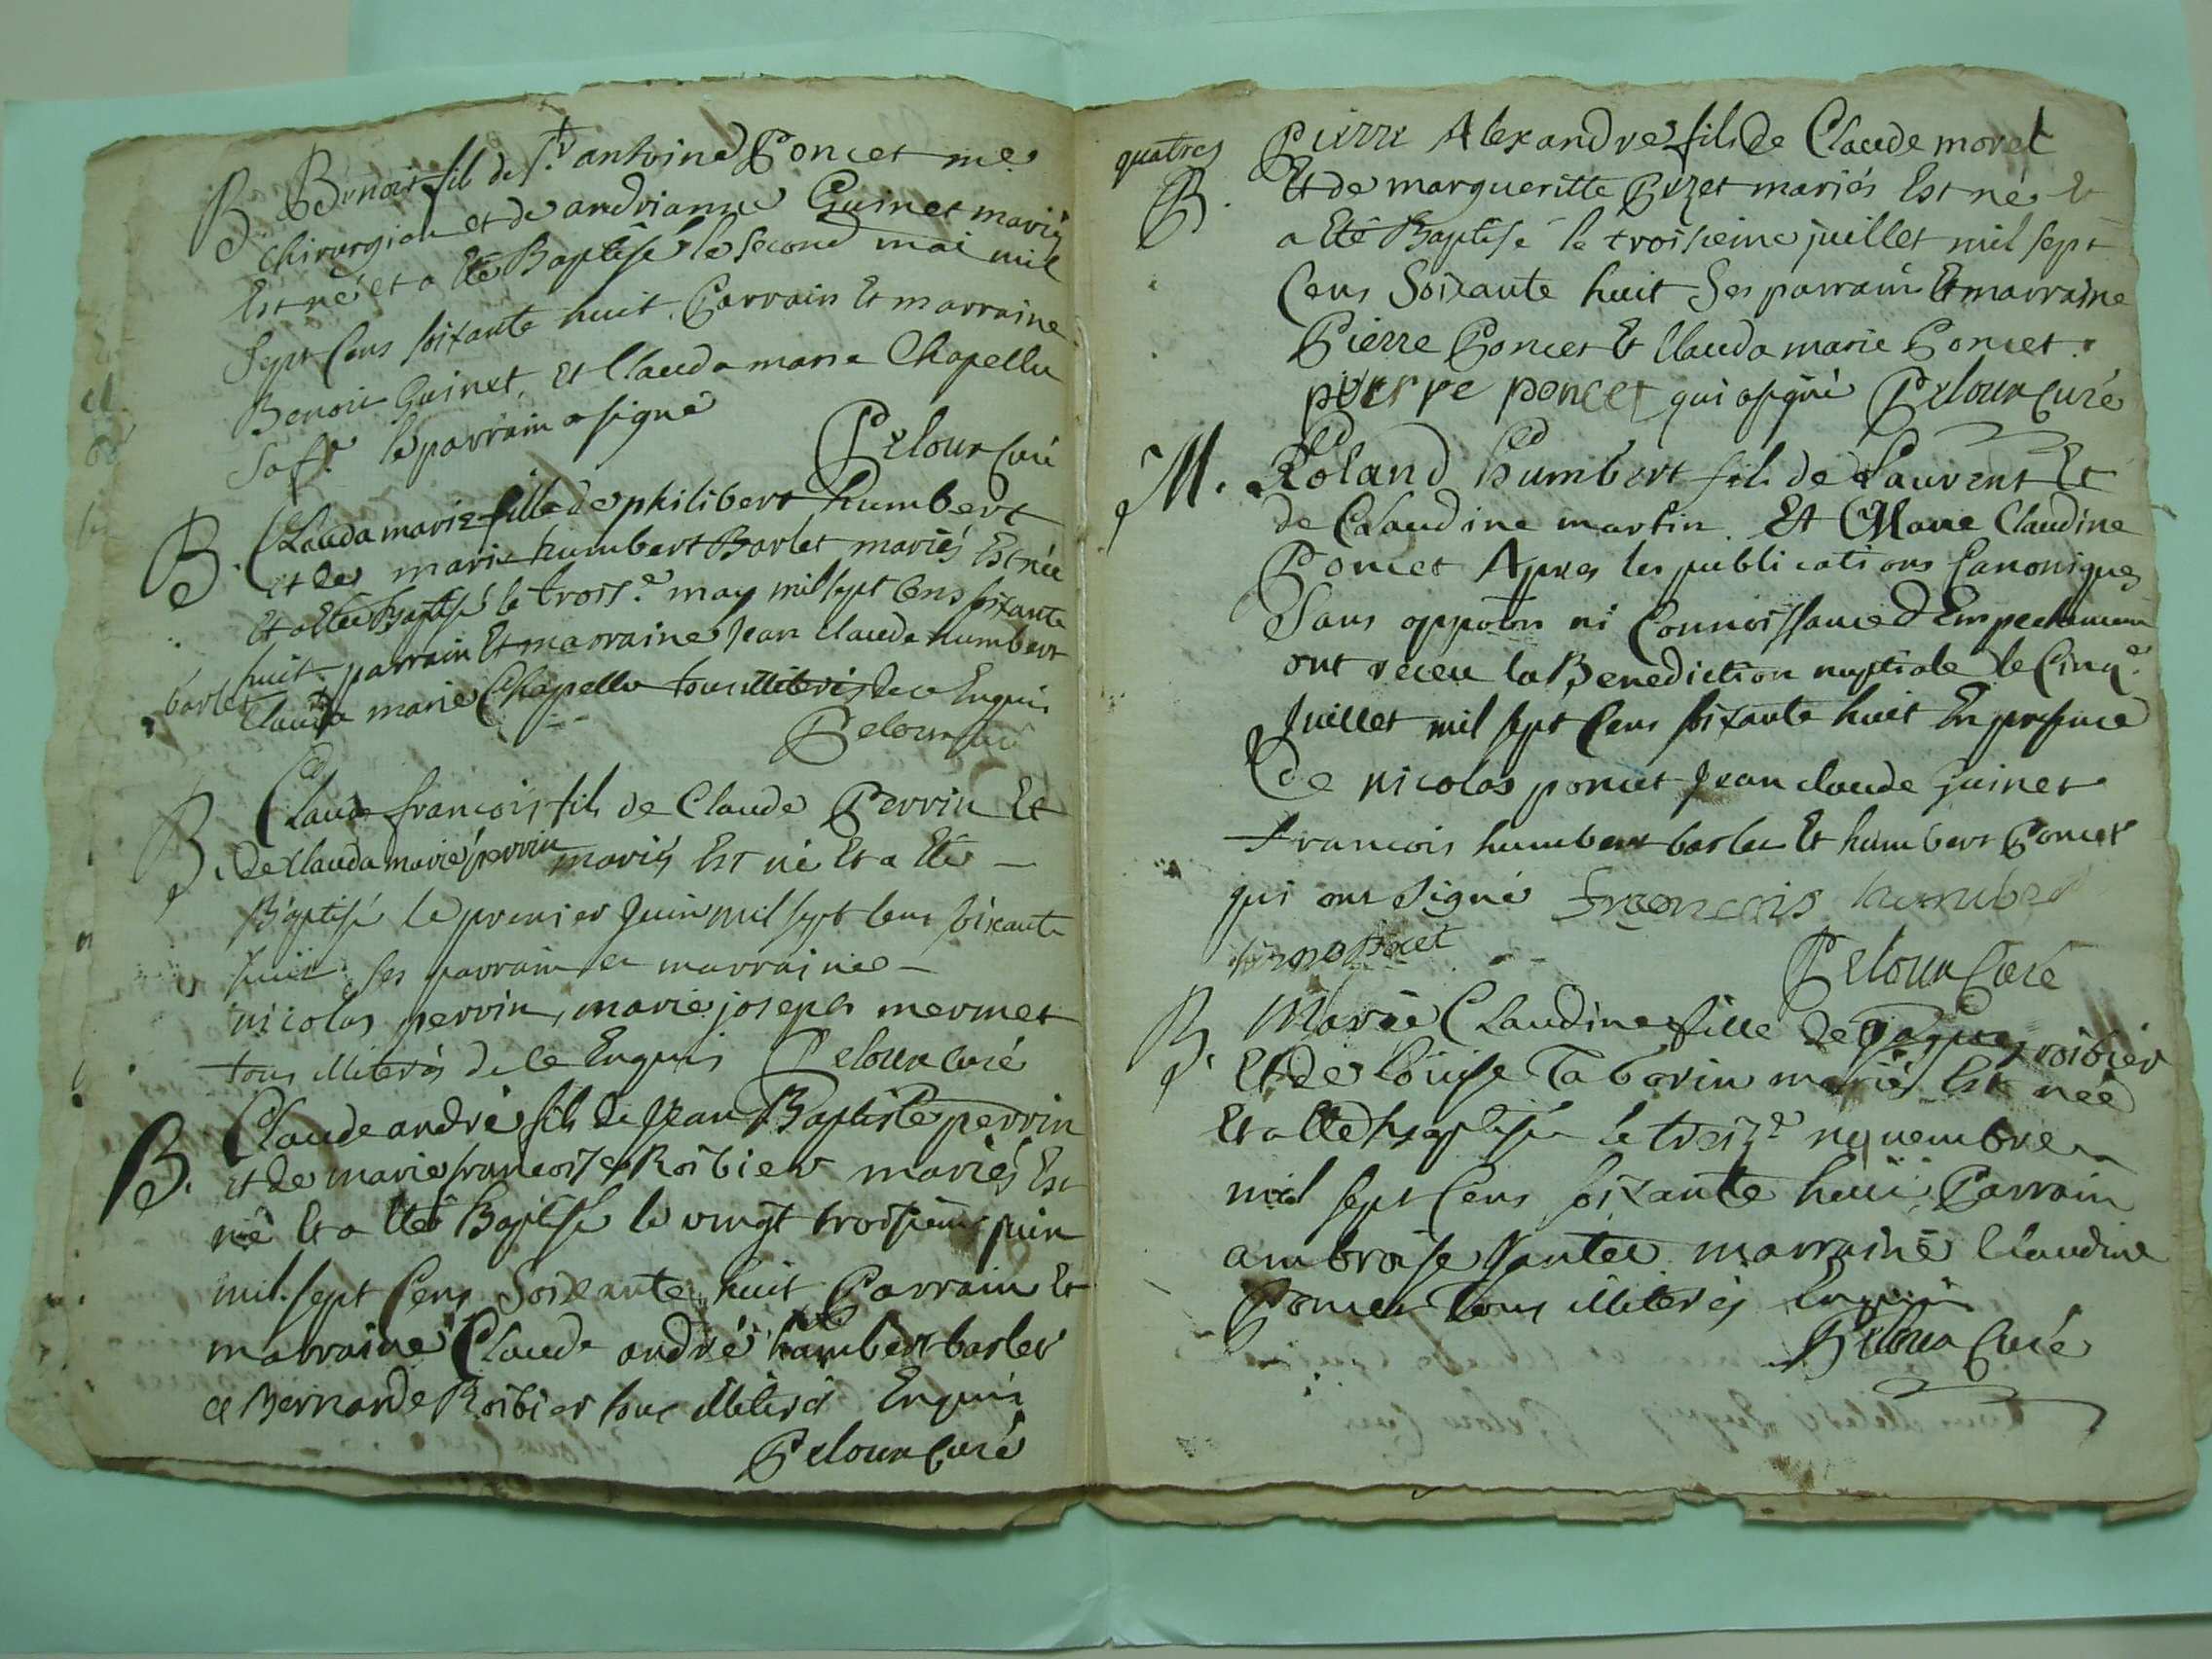 B. Benoit fils de Sr. antoine Poncet me.
chirurgien et de andrianne Guinet mariés
Est né et a Eté Baptisé le second mai mil
Sept Cens soixante huit. Parrain Et marraine
Benoit Guinet, Et Clauda maria Chapellu
le parrain a signé
Peloux Curé
B. Clauda marie fille de philibert humbert
et de marie humbert Barlet mariés Est née
Et a Eté Baptisé le trois.e may mil sept Cens soixante
huit parrain Et marraine Jean Claude humbert
barlet Clauda marie Chapellu tous illiterés de ce Enquis
Peloux Curé
B. Claude francois fils de Claude Perrin Et
de Clauda marie perrin mariés Est né Et a Eté –
Baptisé le premier Juin mil sept Cens soixante
huit Ses parrain et marraine –
nicolas perrin, marie joseph mermet
tous illiterés de ce Enquis Peloux Curé
B. Claude andré fils de Jean Baptiste perrin
et de marie francoise Roibier mariés Est
né Et a Eté Baptisé le vingt troisieme juin
mil sept Cens Soixante huit Parrain Et
marraine Claude andré humbert barlet
et Bernarde Roibier tous illiterés Enquis
Peloux Curé
quatres
B. Pierre Alexandre fils de Claude moret
Et de margueritte Buzet mariés Est né Et
a Eté Baptisé le troisieme juillet mil sept
Cens Soixante huit Ses parrain Et marraine
Pierre Poncet Et Clauda marie Poncet.
pierre poncet qui a signé Peloux Curé
M. Roland humbert fils de Laurent Et
de Claudine martin. Et Marie Claudine
Poncet Apres les publications Canoniques
Sans oppoon ni Connoissance d Empechement
ont receu la Benediction nuptiale le Cinq.e
Juillet mil sept Cens soixante huit En presence
De nicolas poncet Jean claude Guinet
francois humbert barlet Et humbert Poncet
qui ont signé francois humber
Peloux Curé
B. Marie Claudine fille de Roibier
Et de Louise Taborin mariés Est née
Et a Eté baptisée le treiz.e novembre
mil sept Cens soixante huit Parrain
ambroise marraine Claudine
Poncet Tous illiterés Enquis
Peloux Curé